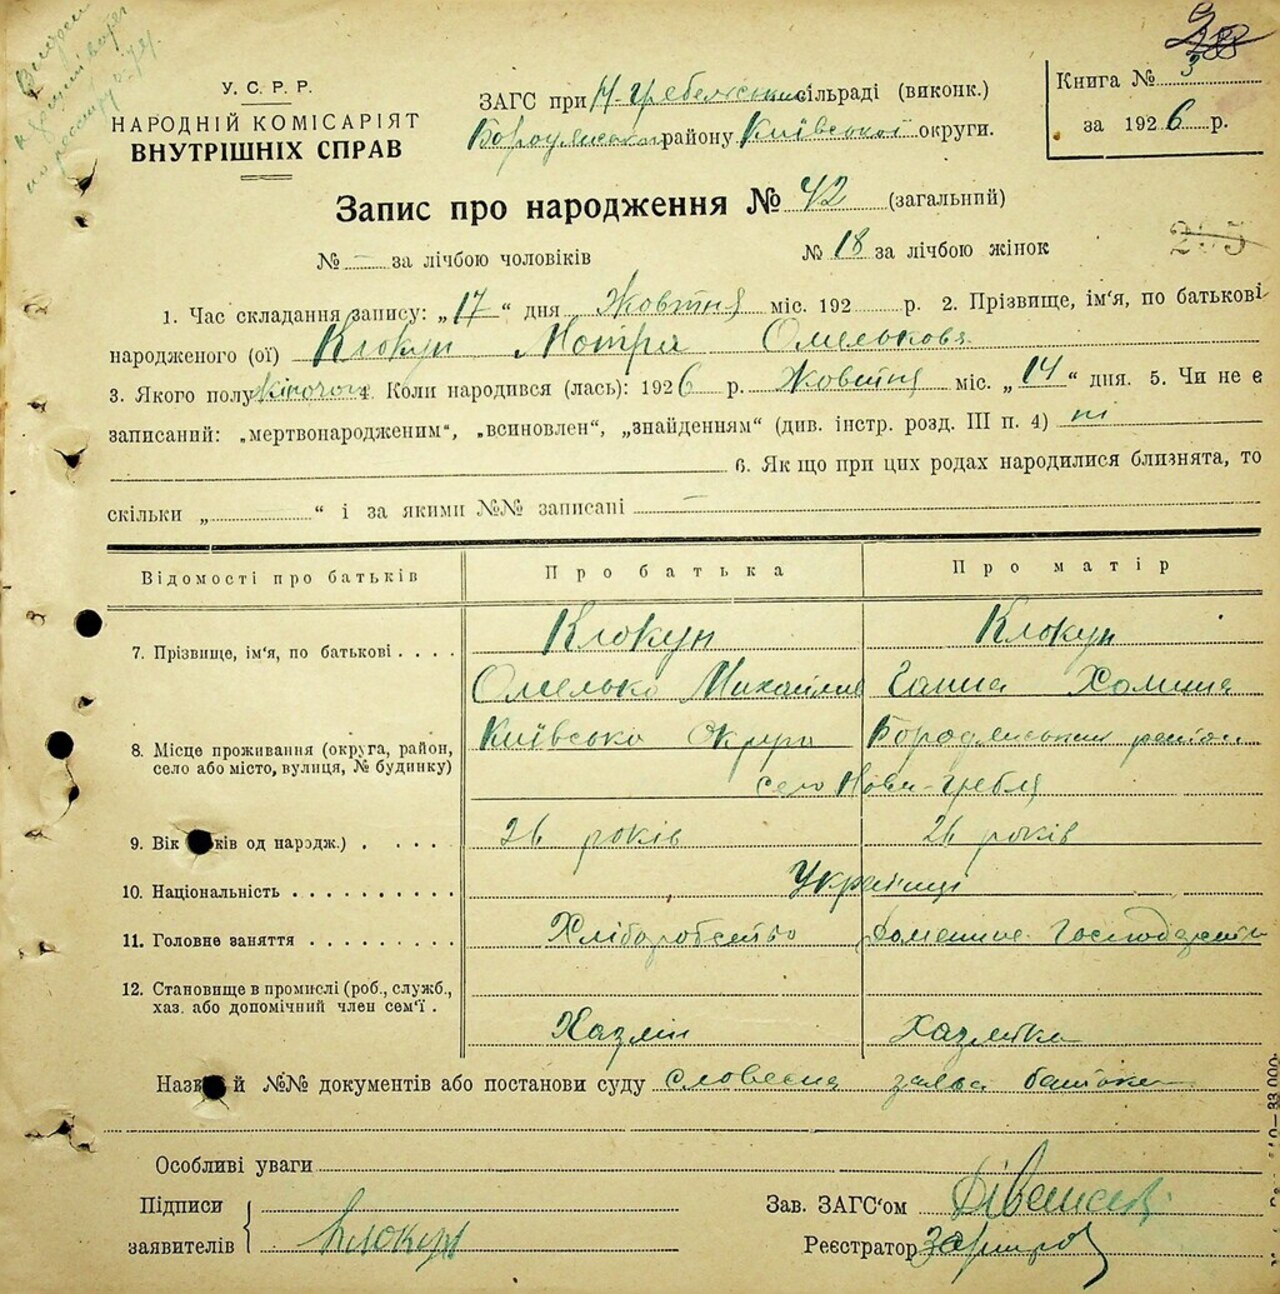 У. С. Р. Р.
НАРОДНІЙ КОМІСАРІЯТ
ВНУТРІШНІХ СПРАВ
ЗАГС при Н-Гребельській сільраді (виконк.)
Бородянськ району Київської округи.
Книга № 3
за 1926 р.
Запис про народження № 42 (загальний)
№ — за лічбою чоловіків № 18 за лічбою жінок
1. Час складання запису: „17“ дня Жовтня міс. 192 р. 2. Прізвище, ім'я, по батькові
народженого (ої) Клокун Мотря Омелькова
3. Якого полу жіночого 4. Коли народився (лась): 1926 р. Жовтня міс. „14“ дня. 5. Чи не є
записаний: „мертвонародженим“, „всиновлен“, „знайденням“ (див. інстр. розд. III п. 4) ні
6. Якщо при цих родах народилися близнята, то
скільки „ “ і за якими №№ записані —
Відомості про батьків Про батька Про матір
7. Прізвище, ім'я, по батькові . . . . Клокун Клокун
Омелько Михайлів Ганна Хомина
8. Місце проживання (округа, район,
село або місто, вулиця, № будинку)
Київсько Округа Бородянський район
село Нова-Гребля
9. Вік ків од народж.) . . . . 26 років 26 років
10. Національність . . . . . . . . . . Українці
11. Головне заняття . . . . . . . . . Хліборобство Домашнє Господарство
12. Становище в промислі (роб., служб.,
хаз. або допомічний член сем'ї .
Хазяїн Хазяйка
Назв й №№ документів або постанови суду словесна заява батька
Особливі уваги
Підписи
заявителів
Клокун
Зав. ЗАГС'ом
Реєстратор